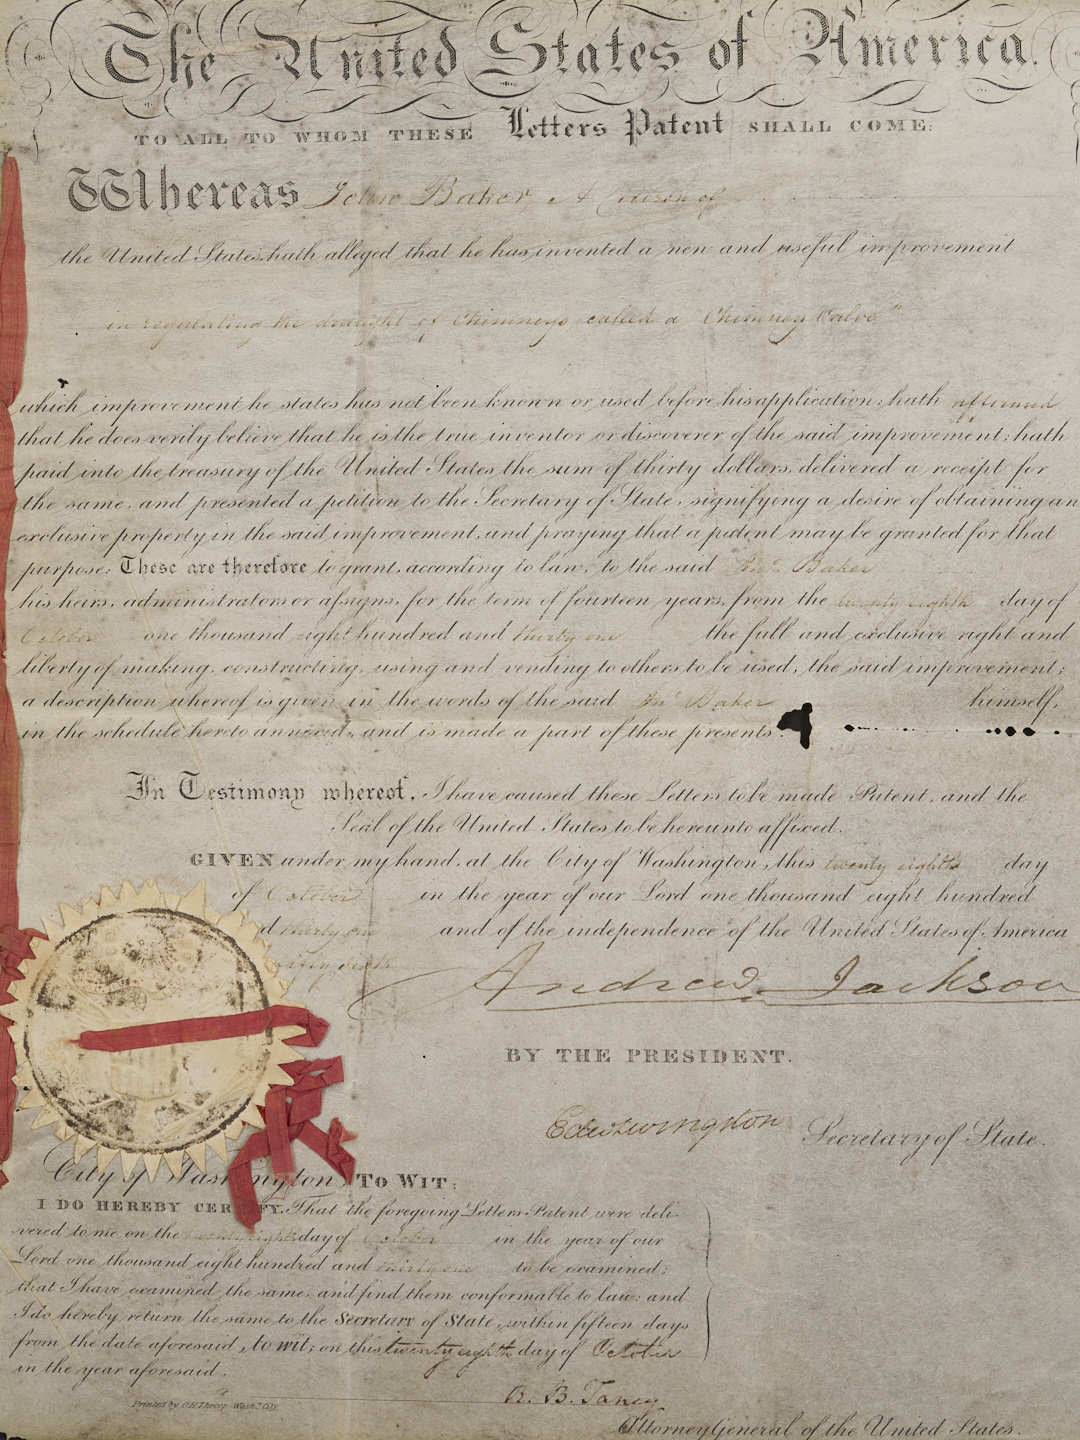 The United States of America.
TO ALL TO WHOM THESE Letters Patent SHALL COME:
Whereas John Baker A Citizen of
the United States, hath alleged that he has invented a new and useful improvement
in regulating the draught of Chimneys, called a "Chimney Valve"
which improvement he states has not been known or used before his application; hath affirmed
that he does verily believe that he is the true inventor or discoverer of the said improvement; hath
paid into the treasury of the United States the sum of thirty dollars, delivered a receipt for
the same, and presented a petition to the Secretary of State, signifying a desire of obtaining an
exclusive property in the said improvement, and praying that a patent may be granted for that
purpose: These are therefore to grant, according to law, to the said Jno. Baker
his heirs, administrators or assigns, for the term of fourteen years, from the twenty eighth day of
October one thousand eight hundred and thirty one the full and exclusive right and
liberty of making, constructing, using and vending to others to be used, the said improvement;
a description whereof is given in the words of the said Jno Baker himself,
in the schedule hereto annexed, and is made a part of these presents.
In Testimony whereof, I have caused these Letters to be made Patent, and the
Seal of the United States to be hereunto affixed.
GIVEN under my hand, at the City of Washington, this twenty eighth day
of October in the year of our Lord one thousand eight hundred
d thirty one and of the independence of the United States of America
fifty sixth
Andrew Jackson
BY THE PRESIDENT.
Edw Livingston Secretary of State.
City of Washington, TO WIT:
I DO HEREBY CERTIFY, That the foregoing Letters Patent were deli-
vered to me on the twenty eighth day of October in the year of our
Lord one thousand eight hundred and thirty one to be examined;
that I have examined the same, and find them conformable to law; and
I do hereby return the same to the Secretary of State, within fifteen days
from the date aforesaid, to wit; on this twenty eighth day of October
in the year aforesaid.
R. B. Taney
Printed by C.H. Throop Washn. City.
Attorney General of the United States.